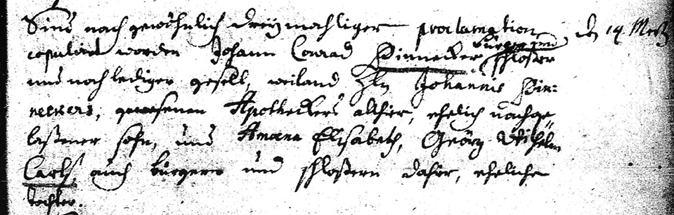 Sind nach gewöhnlich dreymahliger proclamation d. 19. Martz
copulirt worden Johann Conrad Dinnecker, burger und schloßer
und noch lediger gesell, weiland Johannis Din-
neckers, gewesenen Apotheckers alhier, ehelich nachge
laßener sohn, und Anna Elisabeth, Geörg Wilhelm
Carls auch burgers und schloßern dahier, eheliche
tochter.